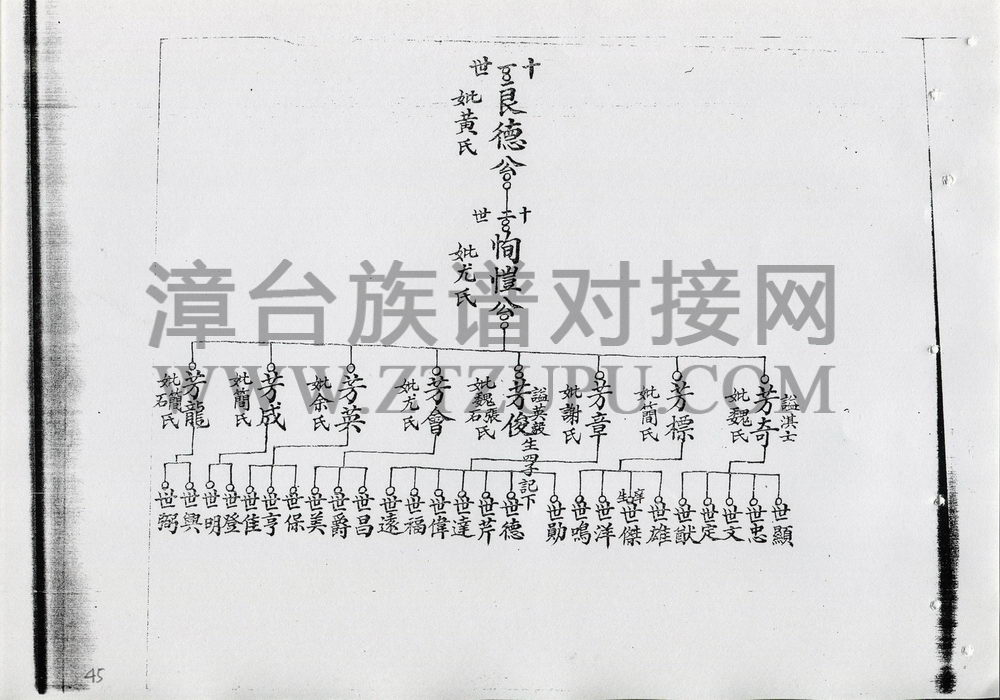 十一世
艮德公
妣黃氏
十二世
恂愷公
妣尤氏
芳奇
諡淇士
妣魏氏
芳標
妣簡氏
芳章
妣謝氏
芳俊
諡英毅
生四子記下
妣魏張石氏
芳會
妣尤氏
芳英
妣余氏
芳成
妣簡氏
芳龍
妣簡石氏
世顯
世忠
世文
世定
世猷
世雄
世傑
庠生
世洋
世鳴
世勛
世德
世芹
世達
世偉
世福
世遠
世昌
世爵
世美
世保
世亨
世佳
世登
世明
世興
世弼
漳台族谱对接网
WWW.ZTZUPU.COM
45